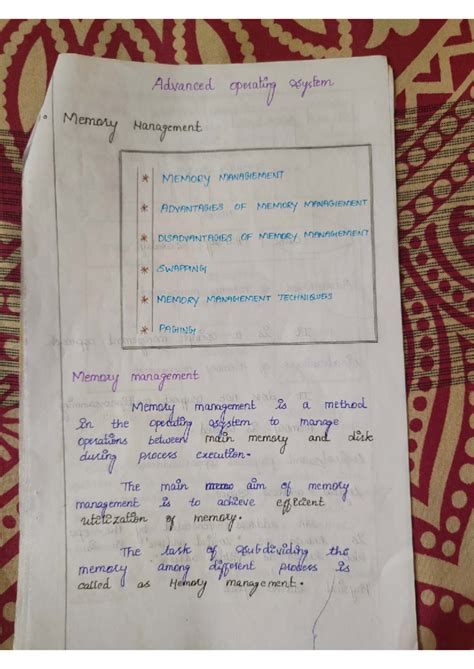 Advanced operating system
Memory Management
* MEMORY MANAGEMENT
* ADVANTAGES OF MEMORY MANAGEMENT
* DISADVANTAGES OF MEMORY MANAGEMENT
* SWAPPING
* MEMORY MANAGEMENT TECHNIQUES
* PAGING
Memory management
Memory management is a method
in the operating system to manage
operations between main memory and disk
during process execution.
The main aim of memory
management is to achieve efficient
utilization of memory.
The task of subdividing the
memory among different process is
called as Memory management.